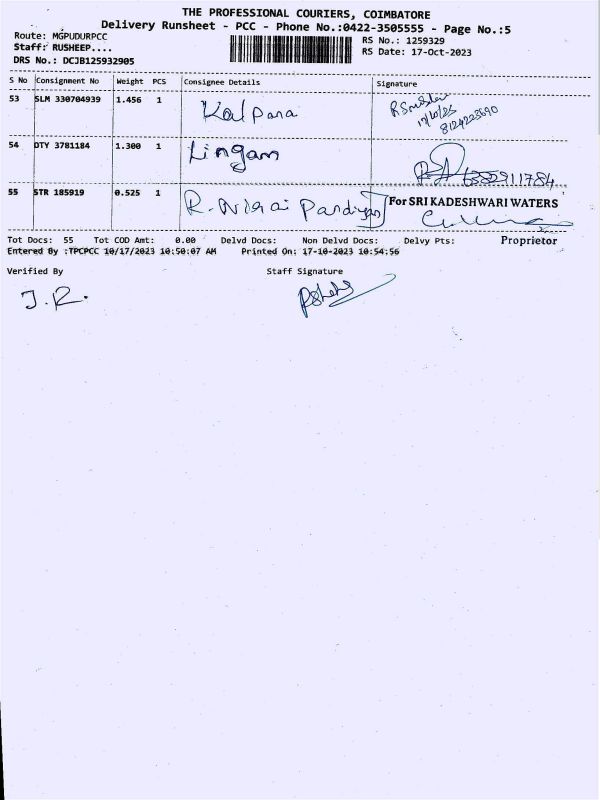 THE PROFESSIONAL COURIERS, COIMBATORE
Delivery Runsheet - PCC - Phone No.:0422-3505555 - Page No.:5
Route: MGPUDURPCC
RS No.: 1259329
Staff: RUSHEEP....
RS Date: 17-Oct-2023
DRS No.: DCJB125932905
S No Consignment No Weight PCS Consignee Details Signature
53 SLM 330704939 1.456 1 Kalpana
54 DTY 3781184 1.300 1 Lingam
55 STR 185919 0.525 1 R. Pandiyan For SRI KADESHWARI WATERS
Tot Docs: 55 Tot COD Amt: 0.00 Delvd Docs: Non Delvd Docs: Delvy Pts: Proprietor
Entered By :TPCPCC 10/17/2023 10:50:07 AM Printed On: 17-10-2023 10:54:56
Verified By Staff Signature
J.R.